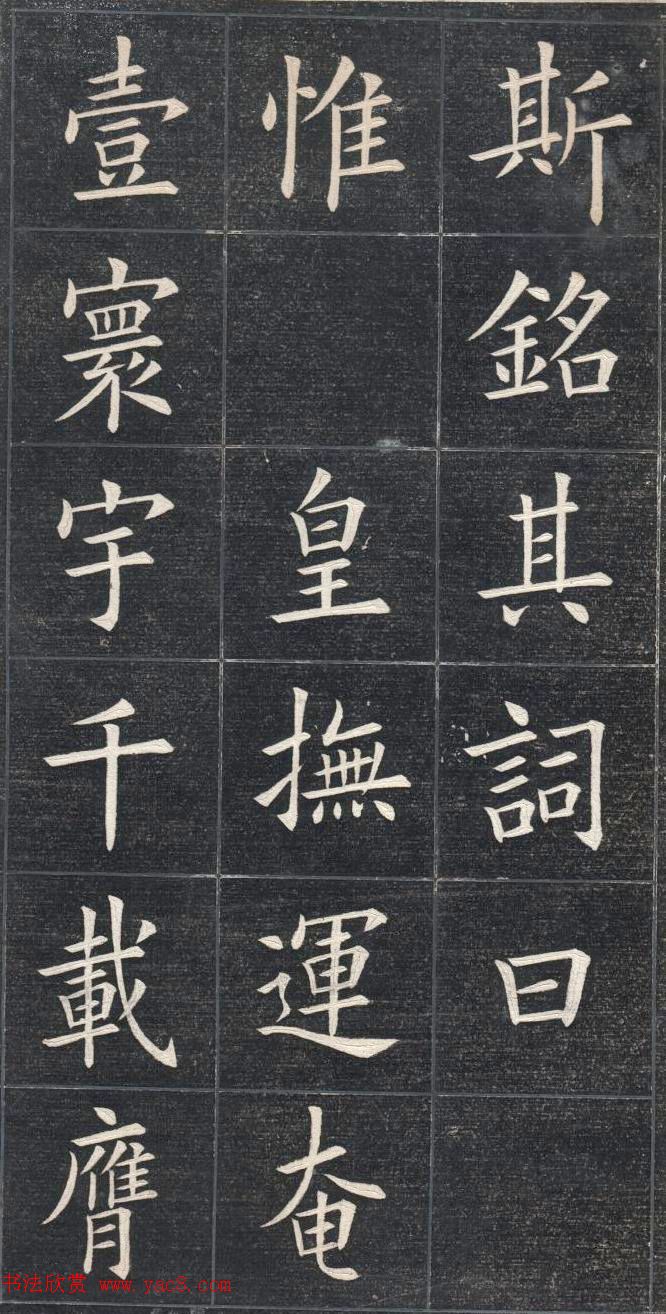 斯銘其詞曰
惟 皇撫運奄
壹寰宇千載膺
书法欣赏 www.yac8.com